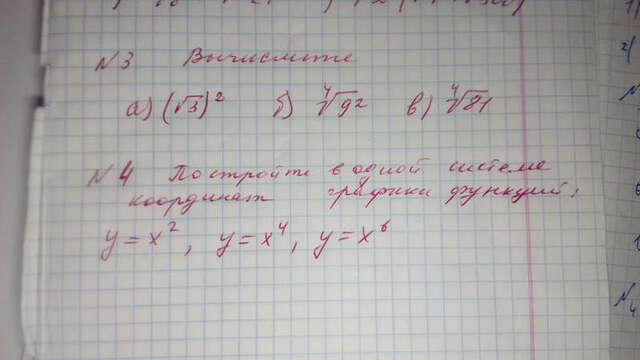 №3 Вычислите
а) (√3)² б) ⁴√9² в) ⁴√81
№4 Постройте в одной системе
координат графики функций:
y = x², y = x⁴, y = x⁶